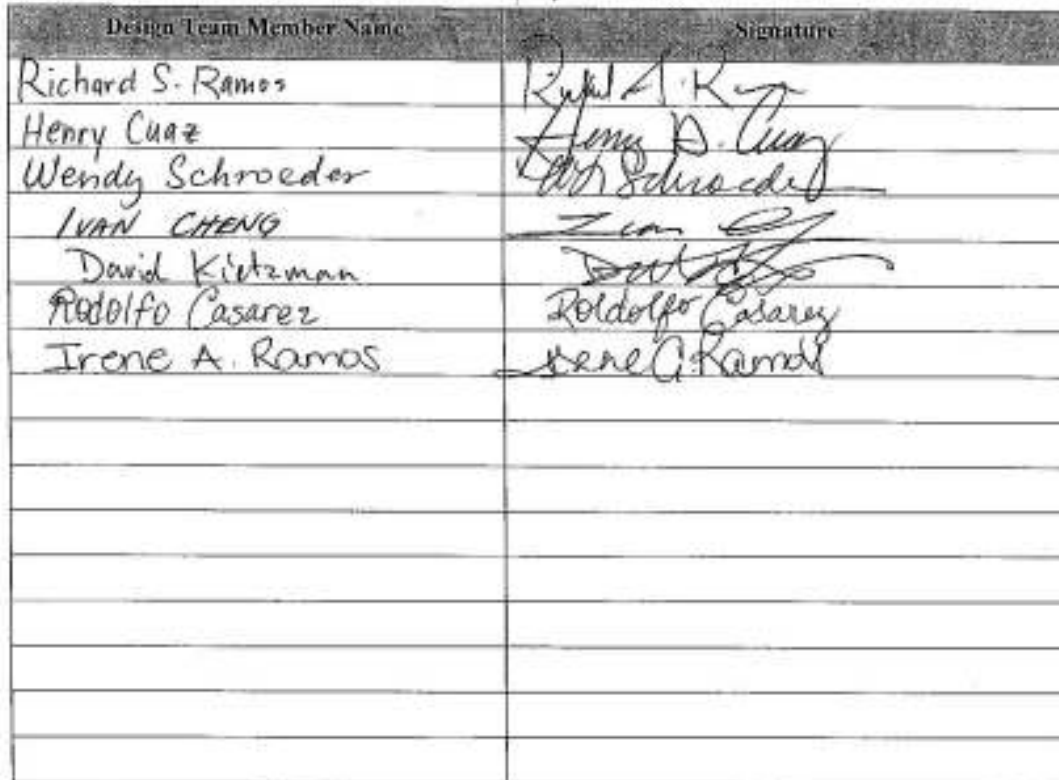 Design Team Member Name Signature
Richard S. Ramos
Henry Cuaz Henry D. Cuaz
Wendy Schroeder Schroeder
IVAN CHENG Ivan
David Kietzman
Rodolfo Casarez Roldolfo Casarez
Irene A. Ramos Irene A. Ramos